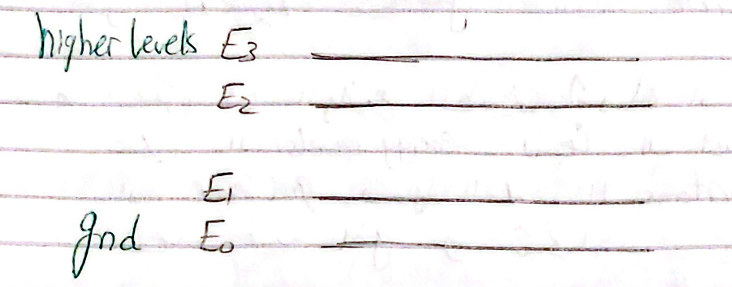 higher levels E3
E2
E1
gnd E0